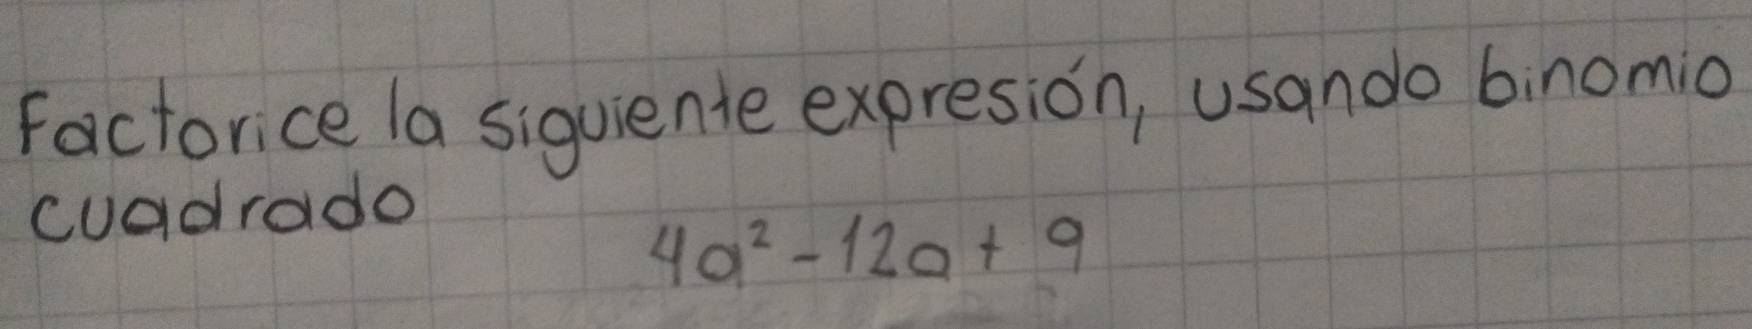 Factorice la siguiente expresión, usando binomio
cuadrado
4a² - 12a + 9